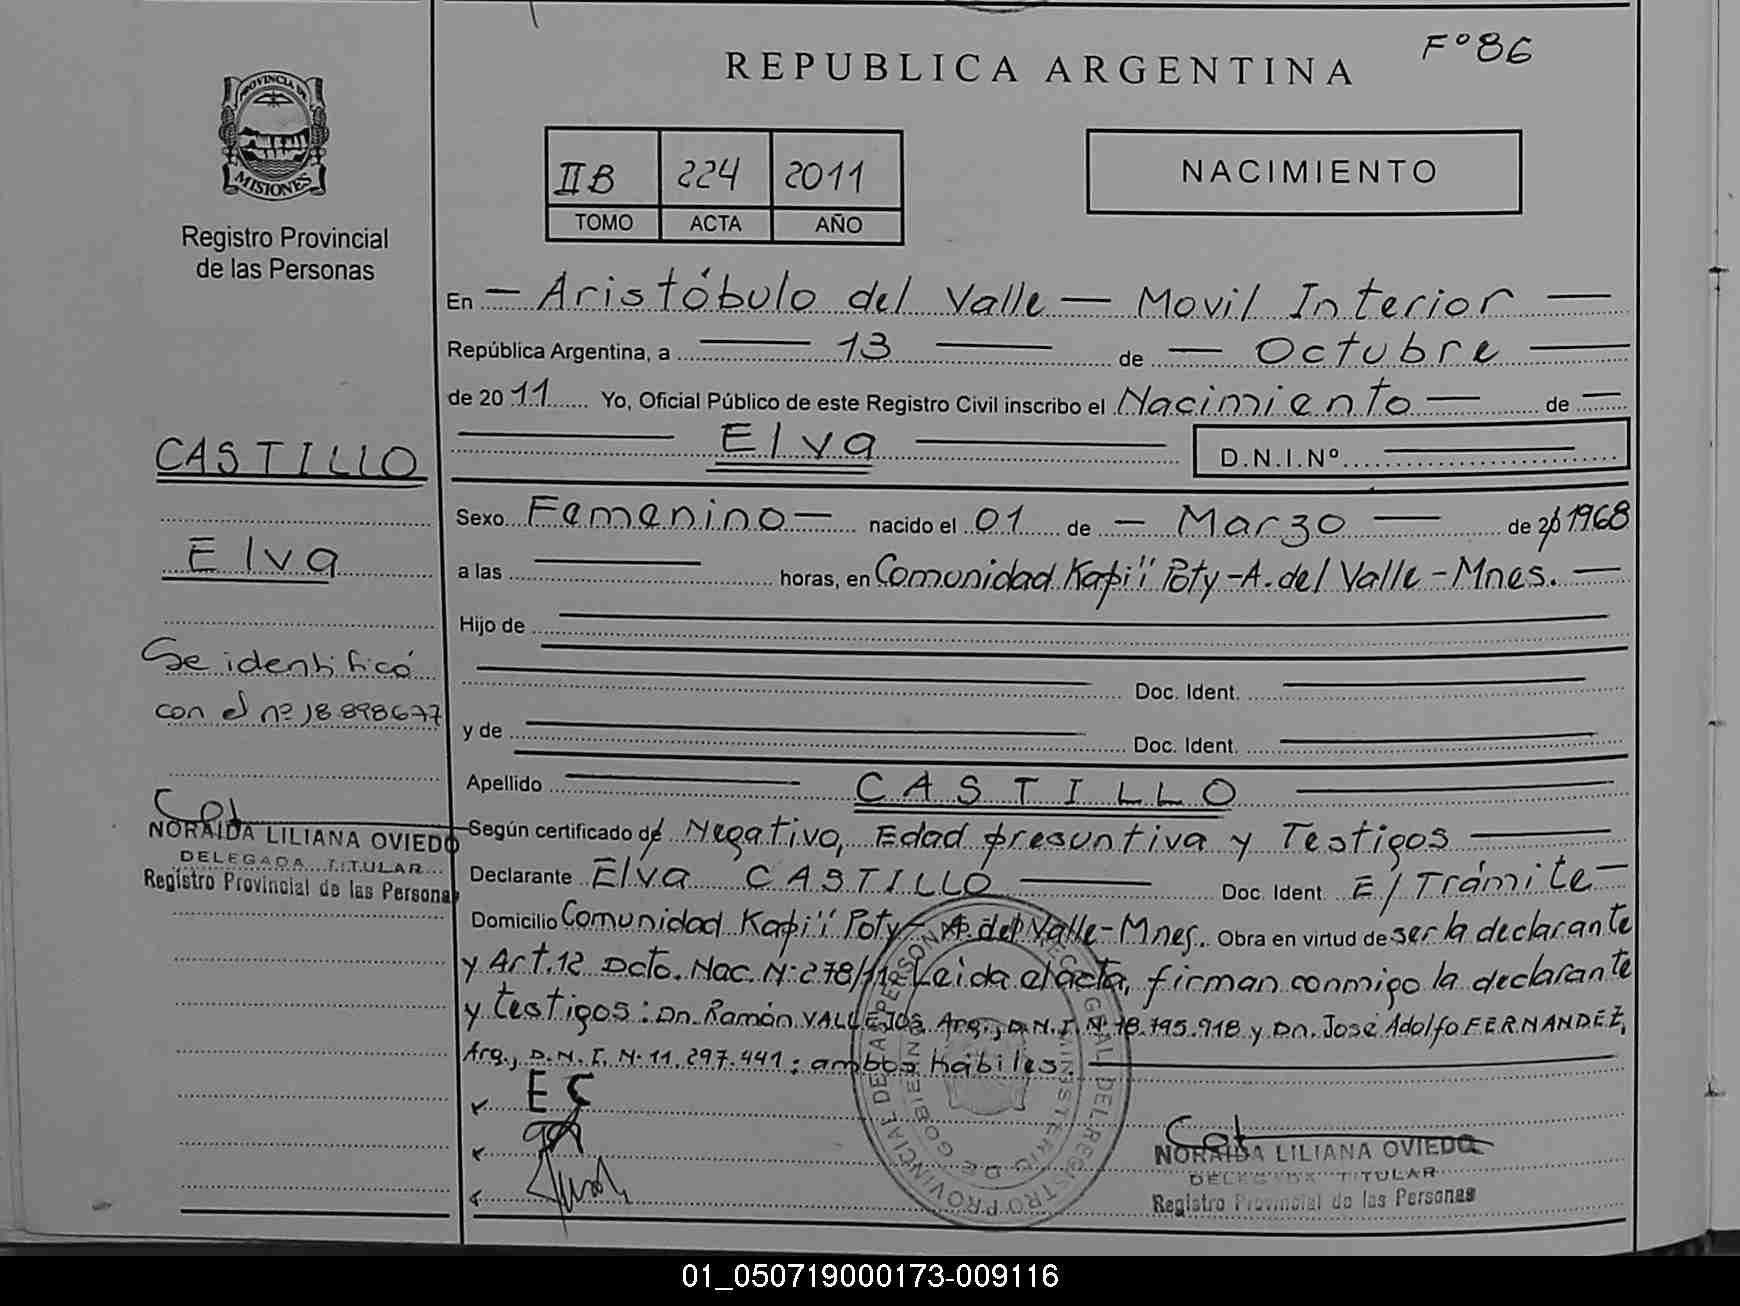 Fº 86
REPUBLICA ARGENTINA
PROVINCIA DE
MISIONES
Registro Provincial
de las Personas
II B 224 2011
TOMO ACTA AÑO
NACIMIENTO
En — Aristóbulo del Valle — Movil Interior —
República Argentina, a — 13 — de — Octubre —
de 20 11 Yo, Oficial Público de este Registro Civil inscribo el Nacimiento — de —
— Elva — D.N.I.Nº —
CASTILLO
Elva
Se identificó
con el nº 18.898677
NORAIDA LILIANA OVIEDO
DELEGADA TITULAR
Registro Provincial de las Persona
Sexo Femenino — nacido el 01 de — Marzo — de 20 1968
a las — horas, en Comunidad Kapi'i Poty - A. del Valle - Mnes. —
Hijo de —
— Doc. Ident. —
y de — Doc. Ident. —
Apellido — CASTILLO —
Según certificado de Negativo, Edad presuntiva y Testigos —
Declarante Elva CASTILLO — Doc. Ident. E/Trámite —
Domicilio Comunidad Kapi'i Poty - A. del Valle - Mnes. Obra en virtud de ser la declarante
y Art. 12 Dcto. Nac. Nº 278/11. Leida el acta, firman conmigo la declarante
y testigos: Dn. Ramón VALLEJOS, Arg., D.N.I. Nº 18.795.918 y Dn. José Adolfo FERNANDEZ,
Arg., D.N.I. Nº 11.297.441; ambos hábiles. —
E C
NORAIDA LILIANA OVIEDO
DELEGADA TITULAR
Registro Provincial de las Personas
01_050719000173-009116